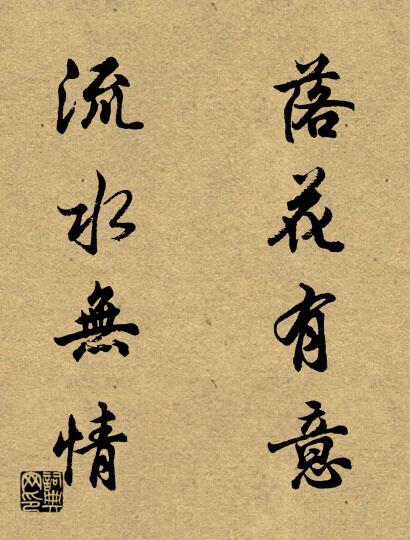 落花有意
流水無情
詞典网印